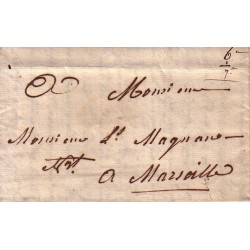 6
7
A Monsieur
Monsieur Ls. Magnan
Nt.
a Marseille